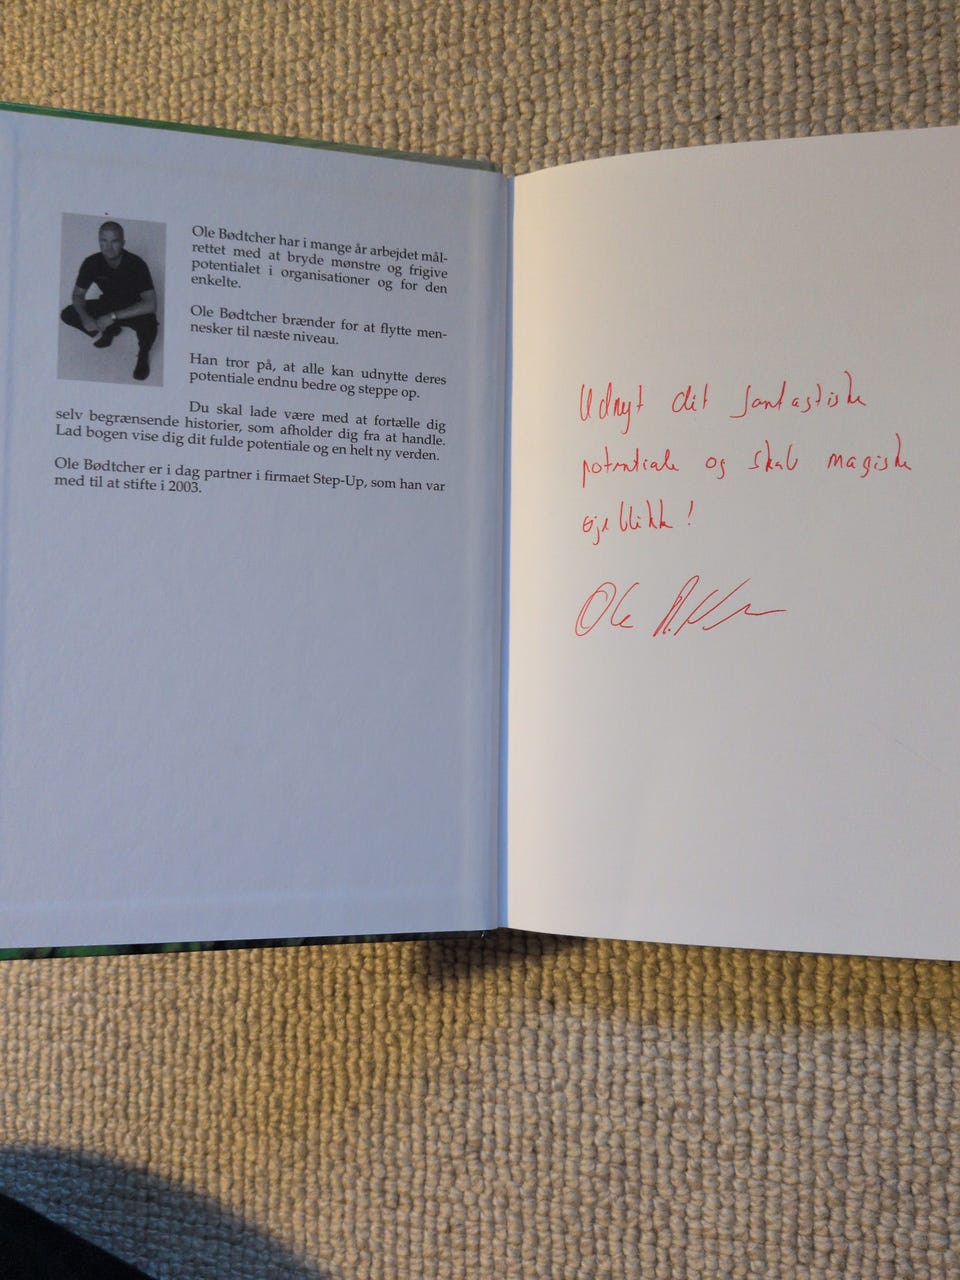 Ole Bødtcher har i mange år arbejdet mål-
rettet med at bryde mønstre og frigive
potentialet i organisationer og for den
enkelte.
Ole Bødtcher brænder for at flytte men-
nesker til næste niveau.
Han tror på, at alle kan udnytte deres
potentiale endnu bedre og steppe op.
Du skal lade være med at fortælle dig
selv begrænsende historier, som afholder dig fra at handle.
Lad bogen vise dig dit fulde potentiale og en helt ny verden.
Ole Bødtcher er i dag partner i firmaet Step-Up, som han var
med til at stifte i 2003.
Udnyt dit fantastiske
potentiale og skab magiske
øjeblikke!
Ole